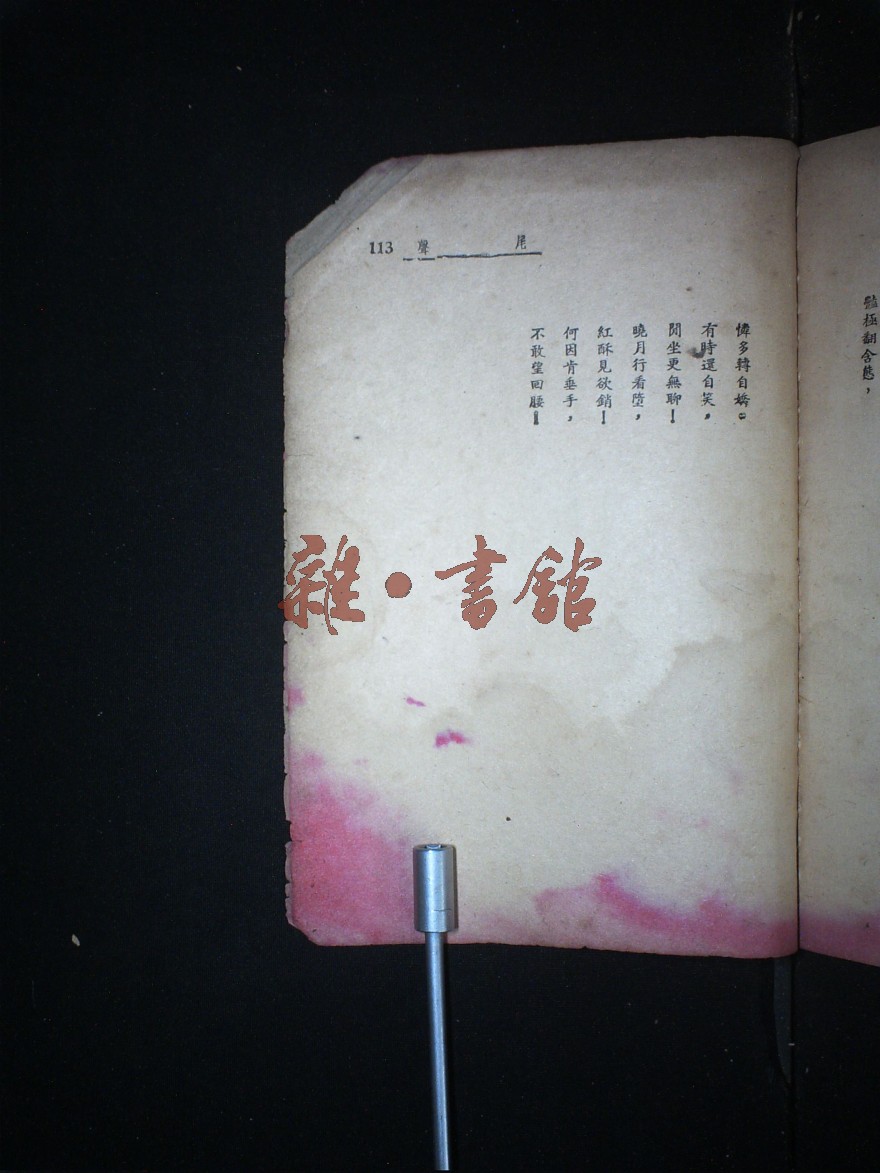 豔極翻含態，
憐多轉自嬌。
有時還自笑，
閒坐更無聊！
曉月行看墮，
紅酥見欲銷！
何因肯垂手，
不敢望回腰！
尾聲 113
雜·書館